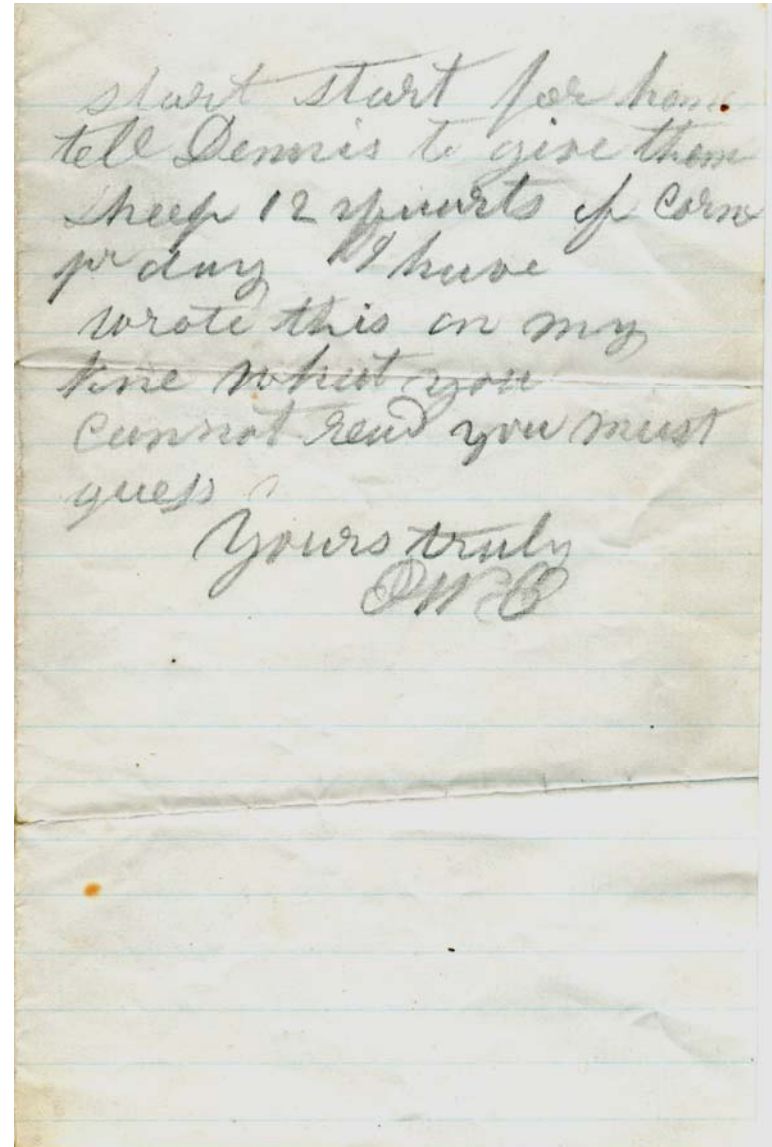 start start for home
tell Dennis to give them
sheep 12 quarts of Corn
pr day I have
wrote this on my
kne what you
cannot read you must
guess
Yours truly